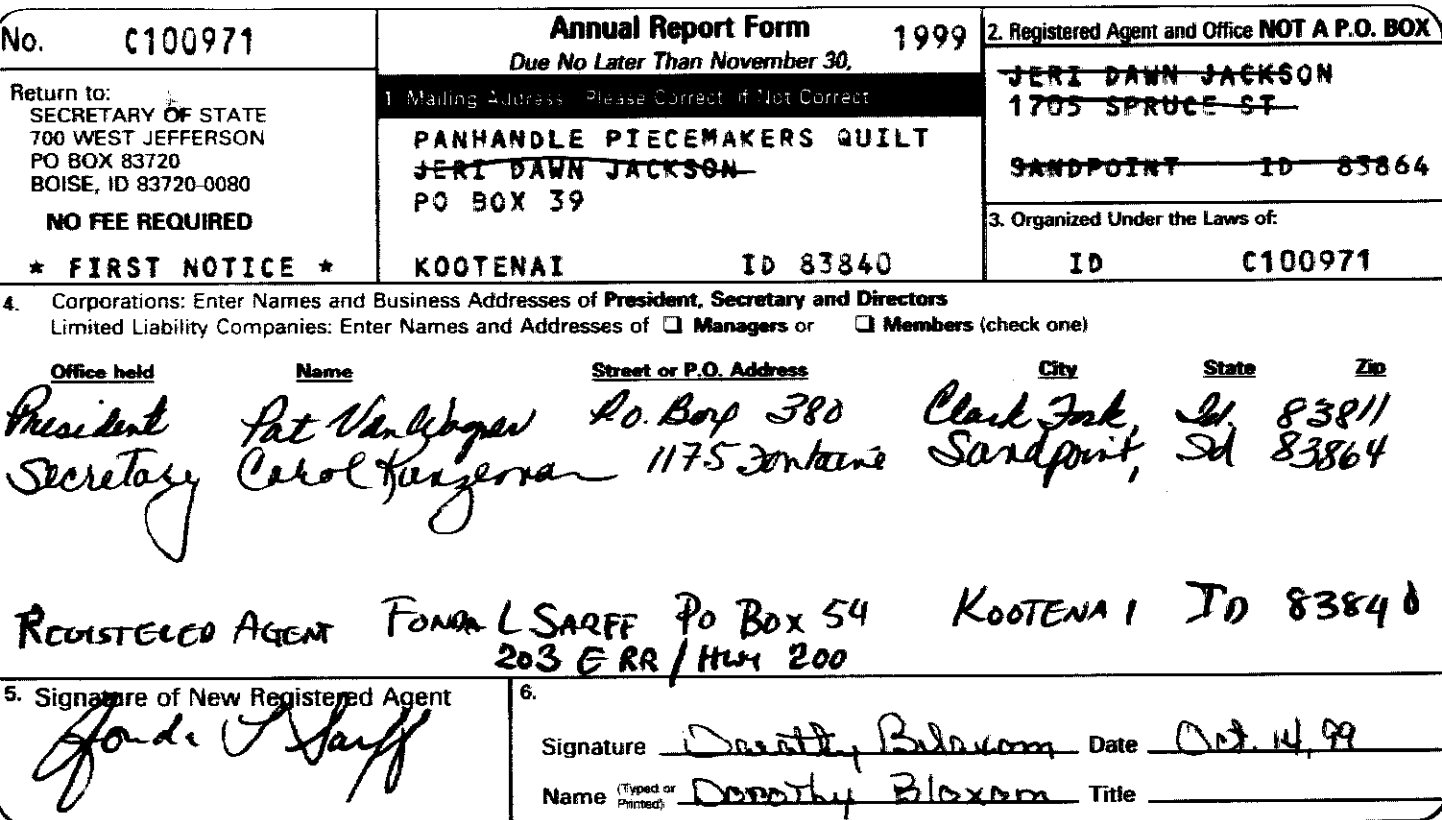 No. C100971
Return to:
SECRETARY OF STATE
700 WEST JEFFERSON
PO BOX 83720
BOISE, ID 83720-0080
NO FEE REQUIRED
* FIRST NOTICE *
Annual Report Form 1999
Due No Later Than November 30,
1 Mailing Address Please Correct If Not Correct
PANHANDLE PIECEMAKERS QUILT
JERI DAWN JACKSON
PO BOX 39
KOOTENAI ID 83840
2. Registered Agent and Office NOT A P.O. BOX
JERI DAWN JACKSON
1705 SPRUCE ST
SANDPOINT ID 83864
3. Organized Under the Laws of:
ID C100971
4. Corporations: Enter Names and Business Addresses of President, Secretary and Directors
Limited Liability Companies: Enter Names and Addresses of ❑ Managers or ❑ Members (check one)
Office held Name Street or P.O. Address City State Zip
President Pat VanWagner P.O. Box 380 Clark Fork, Id. 83811
Secretary Carol 1175 Fontaine Sandpoint, Id 83864
REGISTERED AGENT FONDA L SARFF PO BOX 54 KOOTENAI ID 83840
203 E RR / HWY 200
5. Signature of New Registered Agent
Fonda L Sarff
6.
Signature Dorothy Bloxom Date Oct. 14, 99
Name (Typed or Printed) Dorothy Bloxom Title